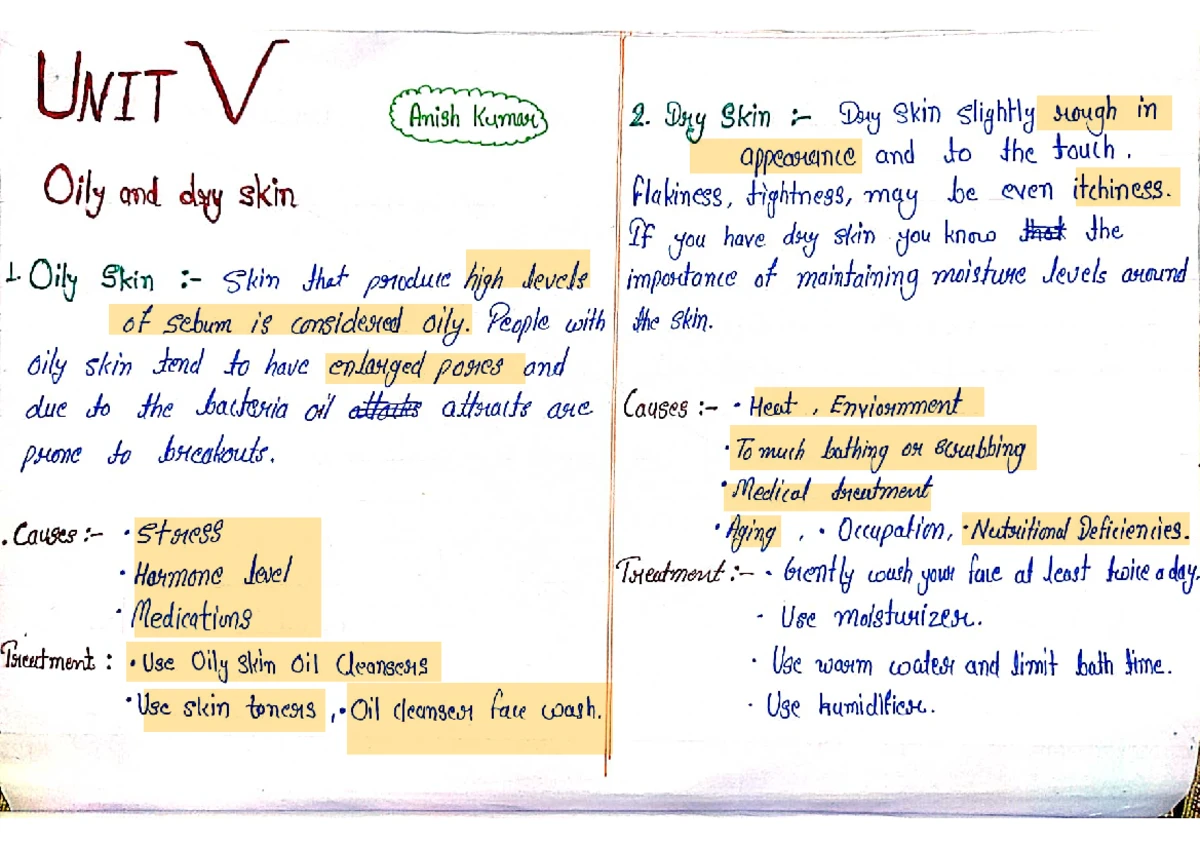 UNIT V
Anish Kumar
Oily and dry skin
1. Oily Skin :- Skin that produce high levels
of sebum is considered oily. People with
oily skin tend to have enlarged pores and
due to the bacteria oil attarks attracts are
prone to breakouts.
. Causes :- • Stress
• Harmone level
• Medications
Treatment : • Use Oily skin oil cleansers
• Use skin toners , • Oil cleanser face wash.
2. Dry Skin :- Dry skin slightly rough in
appearance and to the touch .
flakiness, tightness, may be even itchiness.
If you have dry skin you know that the
importance of maintaining moisture levels around
the skin.
Causes :- • Heat , Enviornment
• To much bathing or scrubbing
• Medical treatment
• Aging , • Occupation, • Nutritional Deficiencies.
Treatment :- • Gently wash your face at least twice a day.
• Use moisturizer.
• Use warm water and limit bath time.
• Use humidifier.